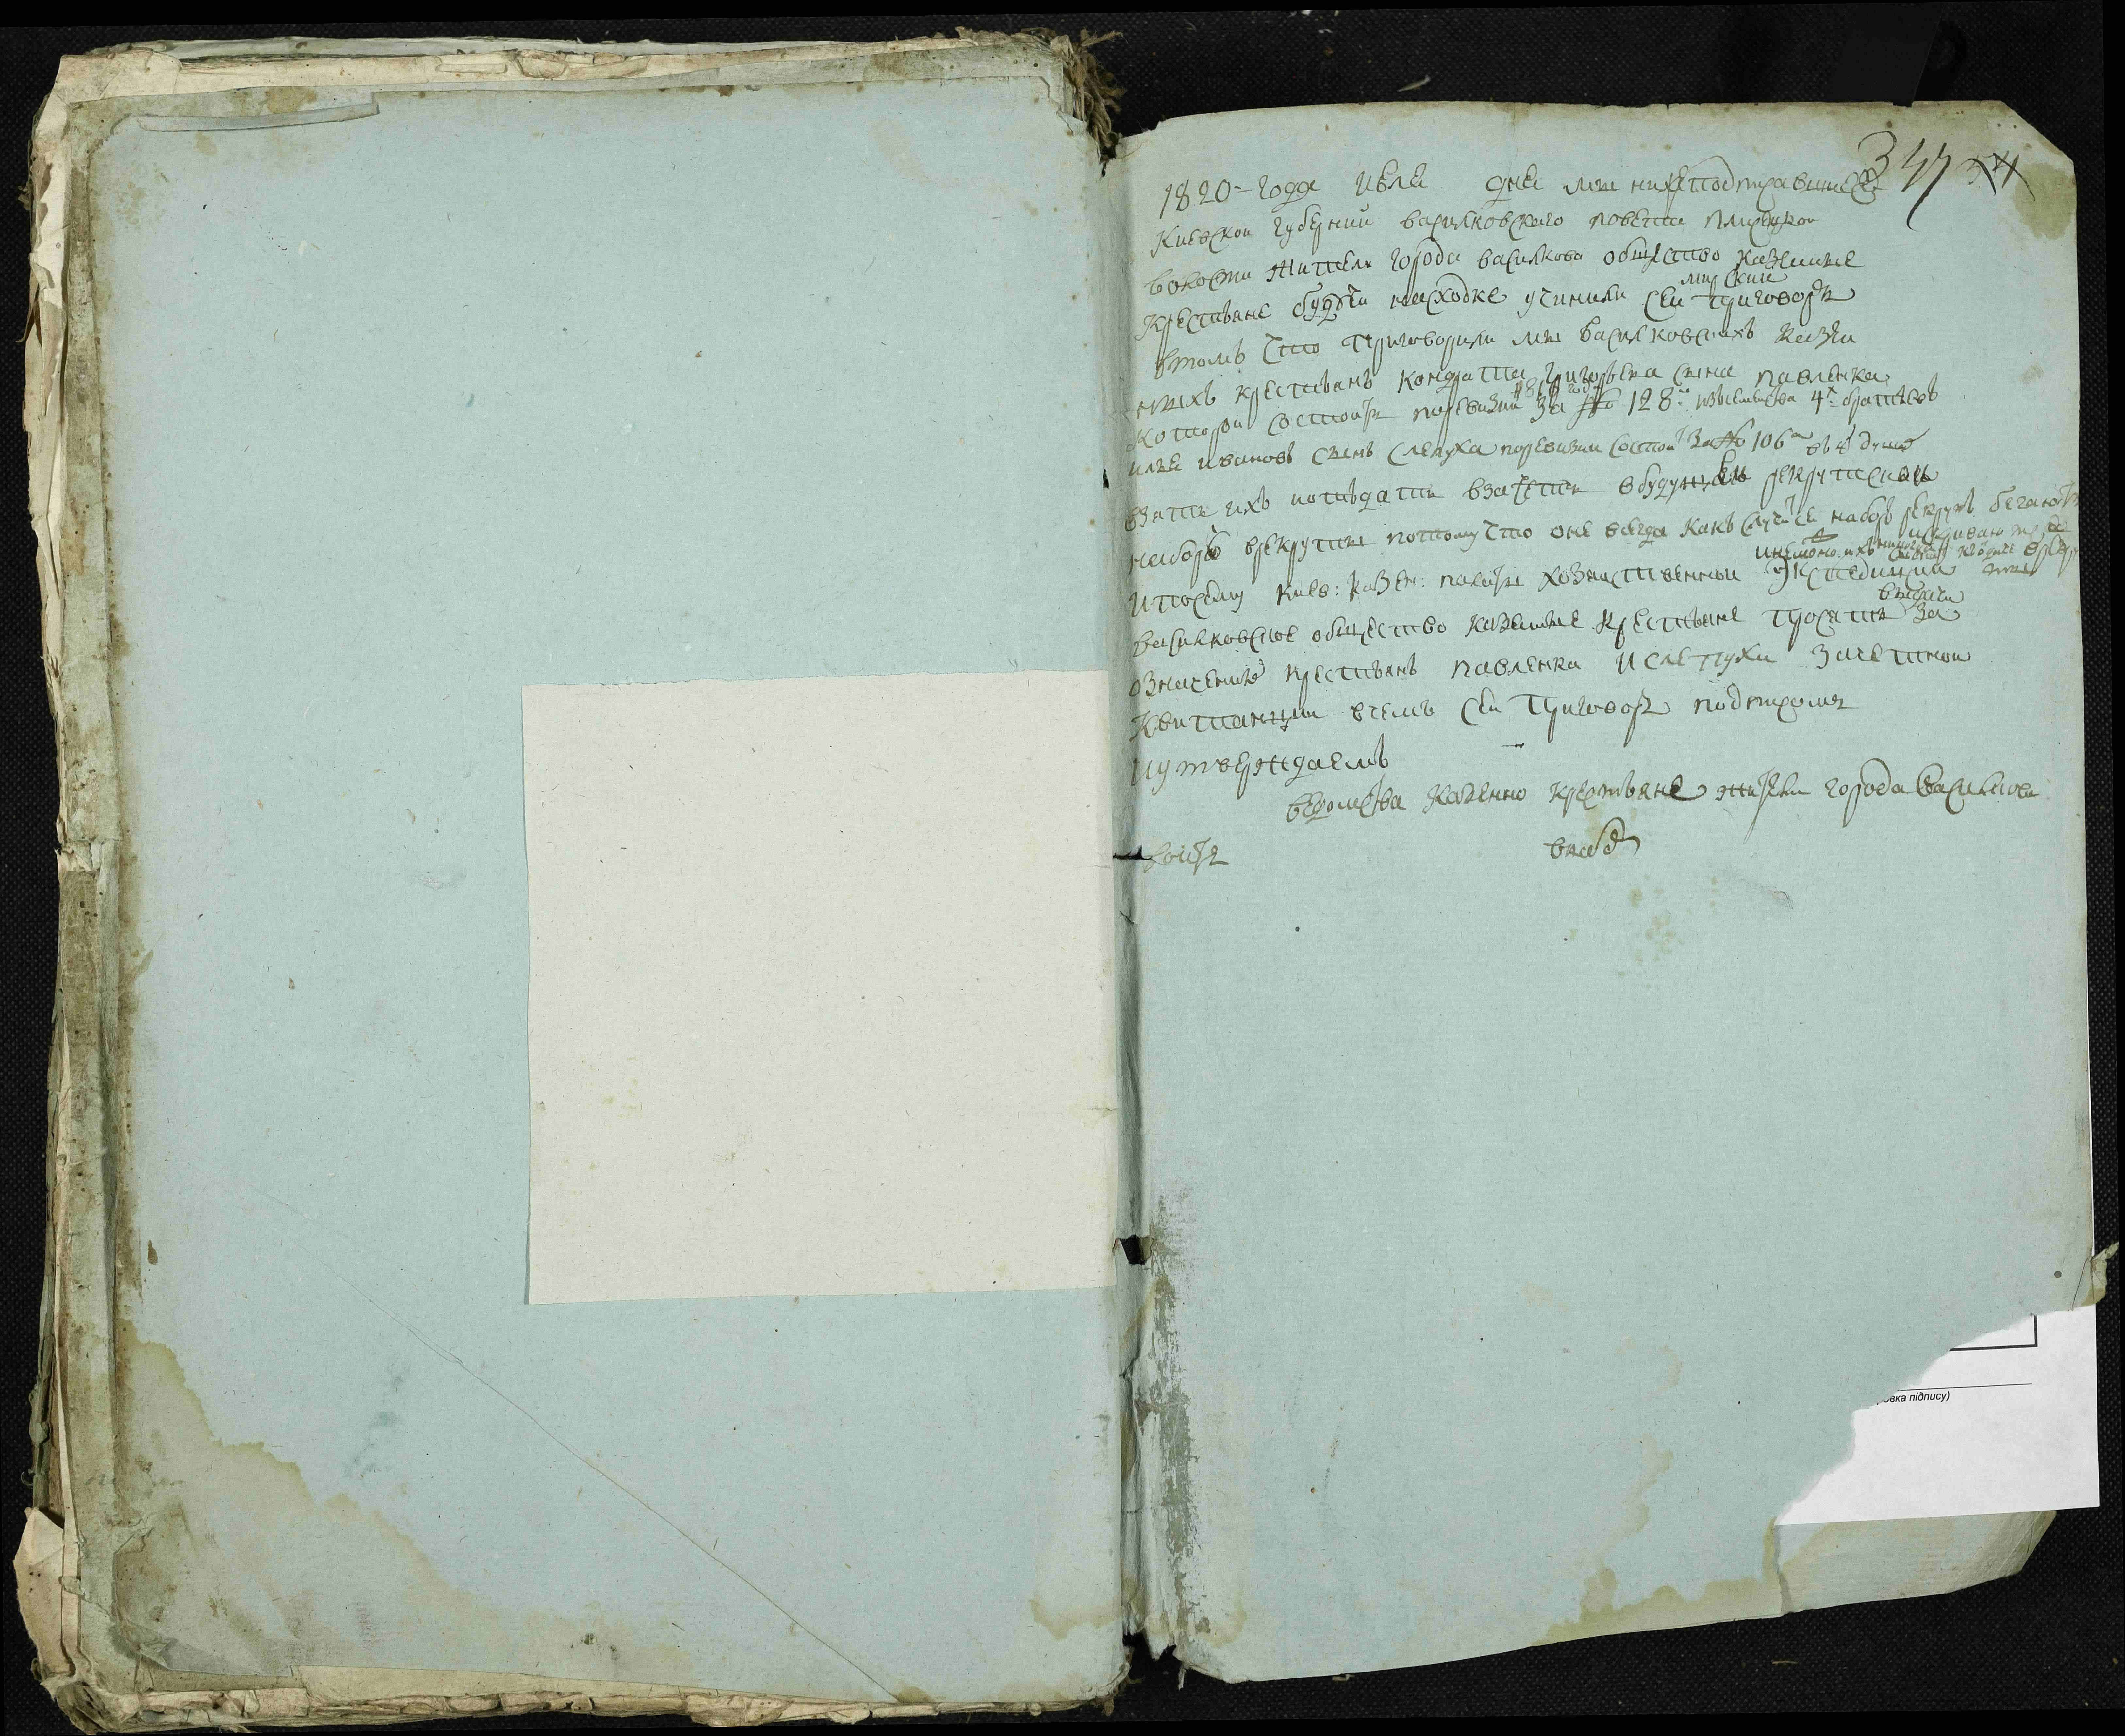 347
1820= года июля дня мы нижеподписавшиеся
Киевской губернии василковского повета плисецкой
волости жители города василкова общество казенные
крестьяне будучи на сходке учинили сей мирский приговоръ
втомъ что приговорили мы василковскихъ казен
ныхъ крестьянъ кондрата григорьева сына павленка
которой состоитъ по ревизии 1811 года За № 128 4х братьевъ
илья ивановъ сынъ слепуха по ревизии состои За № 106м въ 4 душе
взять ихъ и отдать взачетъ в будущей рекрутской
наборъ врекруты потому что оне всегда какъ случится наборъ рекрутъ бегають
и посему Киев: Казен: палаты хозяйственной Экспедиции
василковское общество казенные крестьяне просять выслать За
означенныхъ крестьянъ павленка и слепухи зачетной
квитанции вчемъ сей приговоръ подписомъ
и утверждаемъ
ведомства Казенно крестьяне жители города василкова
войтъ
вка підпису)